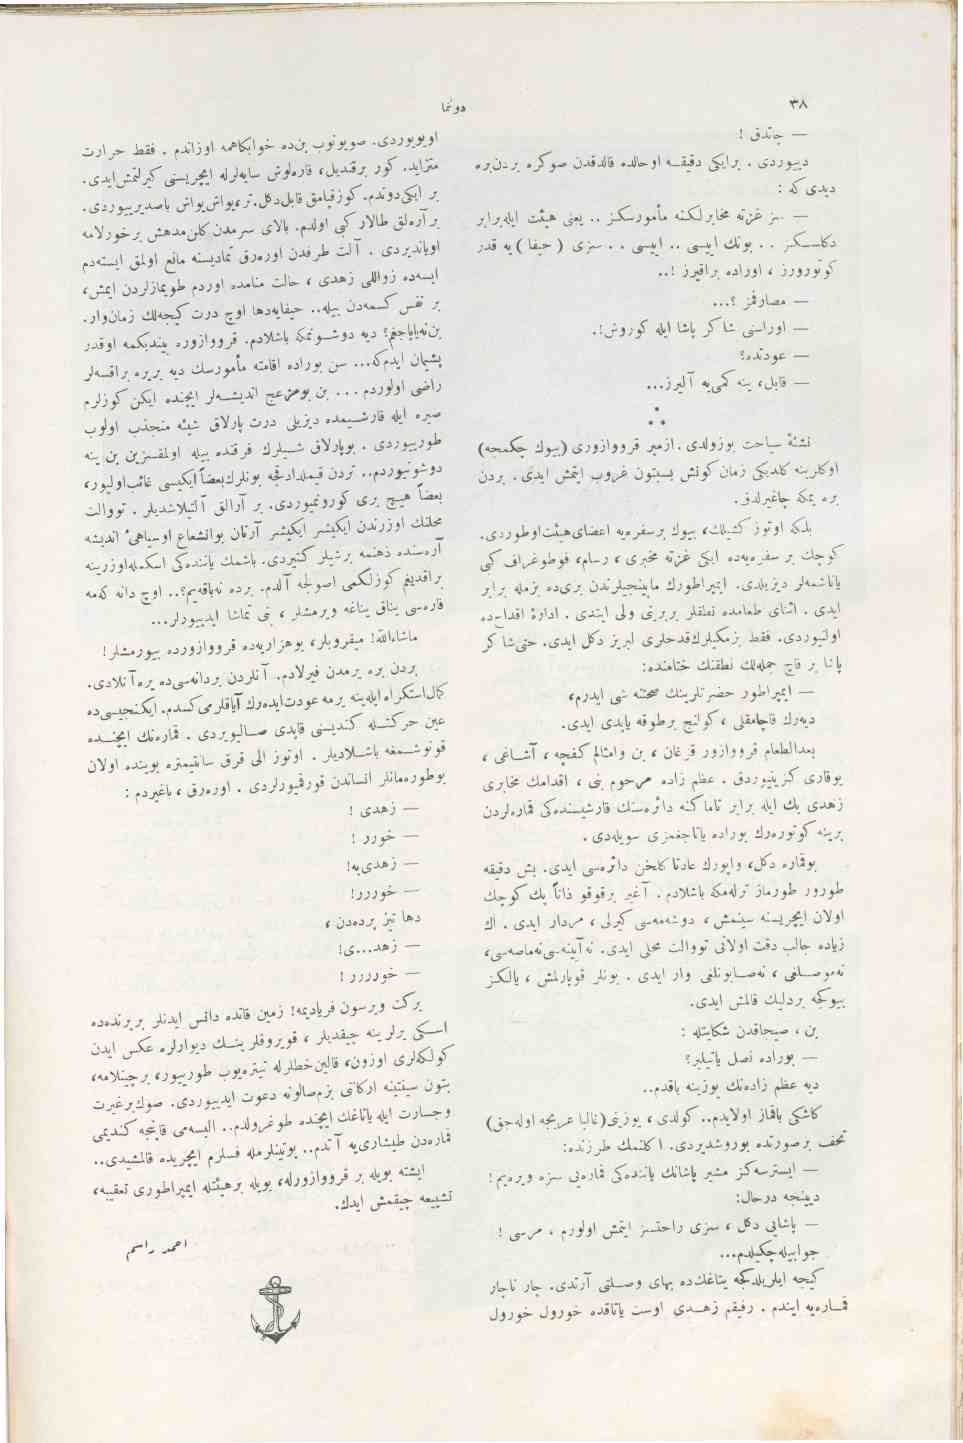 ٣٨
دونما
— چاتدق !
دییوردی . برایكی دقیقه اوحالده قالدقدن صوكره بردن‌بره
دیدی كه :
— سز غزته مخابرلكنه مأمورسكز .. یعنی هیئت ایله برابر
دكلسكز . . بونك اییسی .. اییسی . . سزی ( حیفا ) یه قدر
كوتورورز ، اوراده براقیرز !..
— مصارفمز ؟...
— اوراسنی شاكر پاشا ایله كوروش!.
— عودتده؟
— قابل، ینه كمی‌یه آلیرز...
نشئهٔ سیاحت بوزولدی. ازمیر قرووازوری (بیوك چكمجه)
اوكلرینه كلدیكی زمان كونش بسبتون غروب ایتمش ایدی. بردن
بره یمكه چاغیرلدق.
بلكه اوتوز كشیلك، بیوك برسفره‌یه اعضای هیئت اوطوردی.
كوچك بر سفره‌یه‌ده ایكی غزته مخبری، رسام، فوطوغراف كی
یاناشمه‌لر دیزیلدی. ایمپراطورك مابینجیلرندن بری‌ده بزمله برابر
ایدی . اثنای طعامده نطقلر بربرینی ولی ایتدی . ادارهٔ اقداح‌ده
اولنیوردی. فقط بزمكیلرك قدحلری لبریز دكل ایدی. حتی شاكر
پاشا بر قاچ جمله‌لك نطقنك ختامنده:
— ایمپراطور حضرتلرینك صحتنه شی ایدرم،
دیه‌رك قاچامقلی ، كولنج برطوقه یاپدی ایدی.
بعدالطعام قرووازور قرغان ، بن وامثالم كفچه ، آشاغی ،
یوقاری كزینیوردق . عظم زاده مرحوم بنی ، اقدامك مخابری
زهدی بك ایله برابر تاماكنه دائره‌سنك قارشیسنده‌كی قماره‌لردن
برینه كوتوره‌رك بوراده یاتاجغمزی سویله‌دی .
بوقماره دكل، واپورك عادتا كلخن دائره‌سی ایدی. بش دقیقه
طورور طورماز ترله‌مكه باشلادم . آغیر برقوقو ذاتاً پك كوچك
اولان ایچریسنه سینمش ، دوشه‌مه‌سی كیرلی ، مردار ایدی . اك
زیاده جالب دقت اولانی تووالت محلی ایدی. نه آیینه‌سی نه‌ماصه‌سی،
نه‌موصلغی ، نه‌صابونلغی وار ایدی . بونلر قوپارلمش ، یالكز
بیوكجه بردلیك قالمش ایدی.
بن ، صیجاقدن شكایتله :
— بوراده نصل یاتیلیر؟
دیه عظم زاده‌نك یوزینه باقدم..
كاشكی باقماز اولایدم.. كولدی ، یوزینی(غالبا عربجه اوله‌جق)
تحف برصورتده بوروشدیردی. اكلنمك طرزنده:
— ایسترسه‌كز مشیر پاشانك یاننده‌كی قماره‌یی سزه ویره‌یم !
دیینجه درحال:
— پاشایی دكل ، سزی راحتسز ایتمش اولورم ، مرسی !
جوابیله چكیلدم...
كیجه ایلریلدكجه یتاغك‌ده بهای وصلتی آرتدی. چار ناچار
قماره‌یه ایندم . رفیقم زهدی اوست یاتاقده خورول خورول
اویویوردی. صویونوب بن‌ده خوابكاهمه اوزاندم . فقط حرارت
متزاید. كور برقندیل، قاره‌لوش سایه‌لرله ایچریسنی كیرلتمش ایدی.
بر ایكی دوندم. كوز قپامق قابل دكل.تر، یواش یواش باصدیرییوردی.
بر آره‌لق طالار كبی اولدم. بالای سرمدن كلن مدهش بر خورلامه
اویاندیردی . آلت طرفدن اوره‌رق تمادیسنه مانع اولمق ایسته‌دم
ایسه‌ده زواللی زهدی ، حالت منامده اوردم طویمازلردن ایمش،
بر نفس كسمه‌دن بیله.. حیفایه‌دها اوچ درت كیجه‌لك زمان وار.
بن نه‌یاپاجغم؟ دیه دوشونمكه باشلادم. قرووازوره بیندیكمه اوقدر
پشیمان ایدم كه... سن بوراده اقامته مأمورسك دیه بریره براقسه‌لر
راضی اولوردم ... بن بومزعج اندیشه‌لر ایچنده ایكن كوزلرم
صیره ایله قارشیمده دیزیلی درت پارلاق شیئه منجذب اولوب
طورییوردی . بوپارلاق شیلرك فرقنده بیله اولمقسزین بن ینه
دوشونیوردم.. تردن قیملدادقجه بونلرك بعضاً ایكیسی غائب اولیور،
بعضاً هیچ بری كورونمیوردی. بر آرالق آلتیلاشدیلر . تووالت
محلنك اوزرندن ایكیشر ایكیشر آرتان بوانشعاع اوسیاهیٔ اندیشه
آره‌سنده ذهنمه برشیلر كتیردی. باشمك یاننده‌كی اسكمله اوزرینه
براقدیغم كوزلكمی اصولجه آلدم. برده نه‌باقه‌یم؟.. اوچ دانه كه‌مه
قاره‌سی یناق یناغه ویرمشلر ، بنی تماشا ایدییورلر...
ماشاءالله! میقروبلر، بوهزاریه‌ده قرووازورده بیورمشلر!
بردن بره یرمدن فیرلادم. آنلردن بردانه‌سی‌ده یره آتلادی.
كمال استكراه ایله ینه یرمه عودت ایده‌رك آیاقلرمی كسدم. ایكنجیسی‌ده
عین حركتله كندیسنی قاپدی صالیویردی . قماره‌نك ایچنده
قونوشمغه باشلادیلر . اوتوز الی قرق سانتیمتره بوینده اولان
بوطوره‌مانلر انساندن قورقمیورلردی . اوره‌رق ، باغیردم :
— زهدی !
— خورر !
— زهدی به!
— خوررر!
دها تیز پرده‌دن ،
— زهد...ی!
— خورررر !
بركت ویرسون فریادیمه! زمین قاتده دانس ایدنلر بر پرنده‌ده
اسكی یرلرینه چیقدیلر ، قویروقلرینك دیوارلره عكس ایدن
كولكه‌لری اوزون، قالین خطلرله تیتره‌یوب طورییور، برچینلامه،
بتون سینتینه اركاننی بزم‌صالونه دعوت ایدییوردی. صوك برغیرت
وجسارت ایله یاتاغك ایچنده طوغرولدم.. البسه‌می قاپنجه كندیمی
قماره‌دن طیشاری‌یه آتدم.. پوتینلرمله فسلرم ایچریده قالمشیدی..
ایشته بویله بر قرووازورله، بویله برهیئتله ایمپراطوری تعقیبه،
تشییعه چیقمش ایدك.
احمد راسم